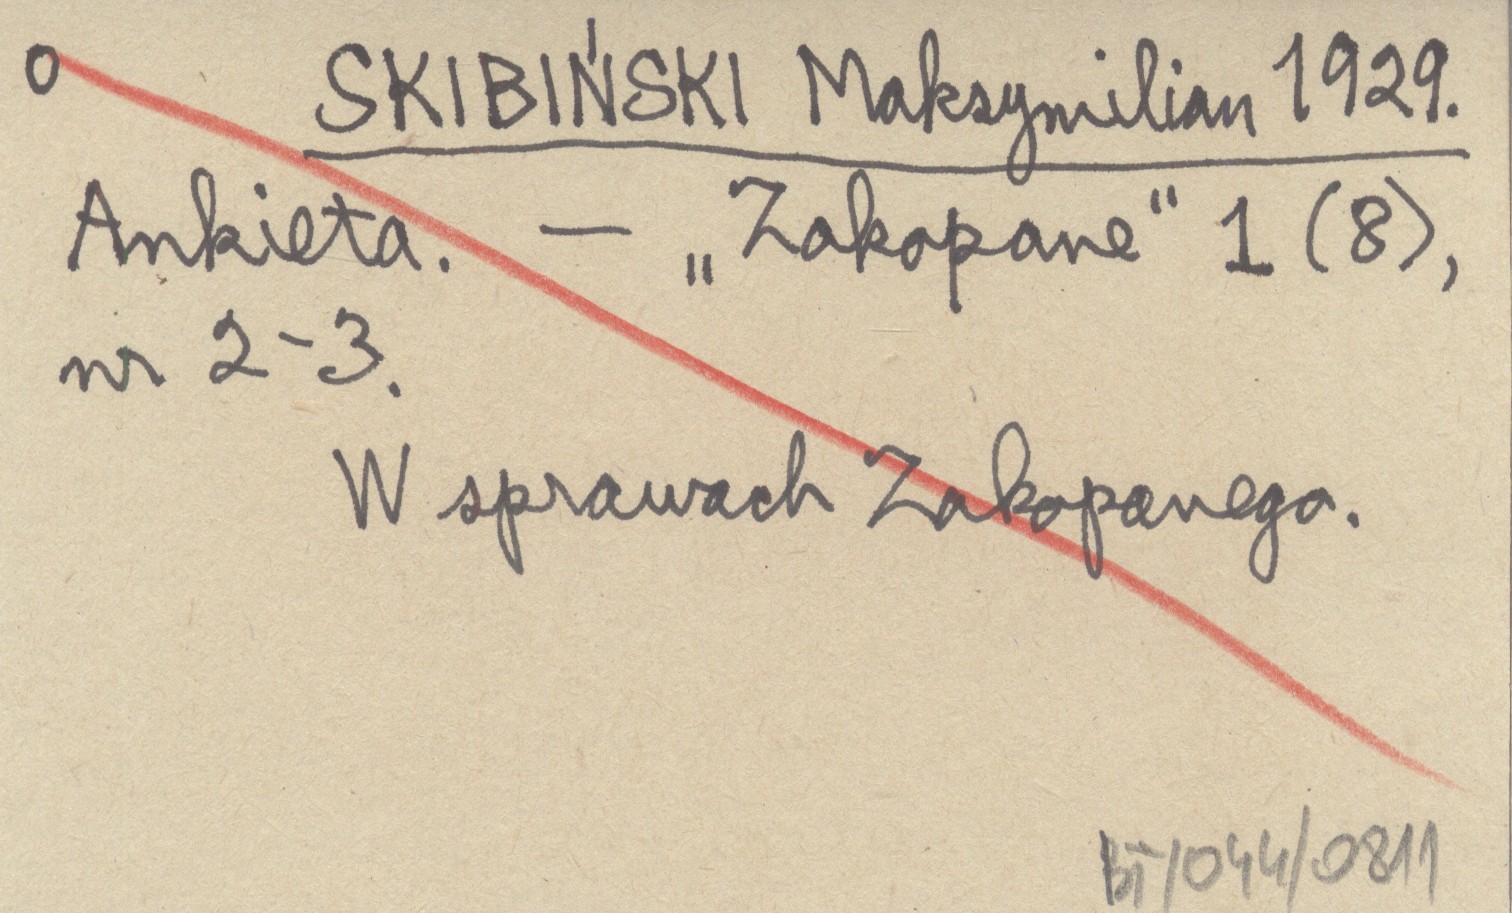 O SKIBIŃSKI Maksymilian 1929.
Ankieta. — „Zakopane" 1 (8),
nr 2-3.
W sprawach Zakopanego.
BT/044/0811